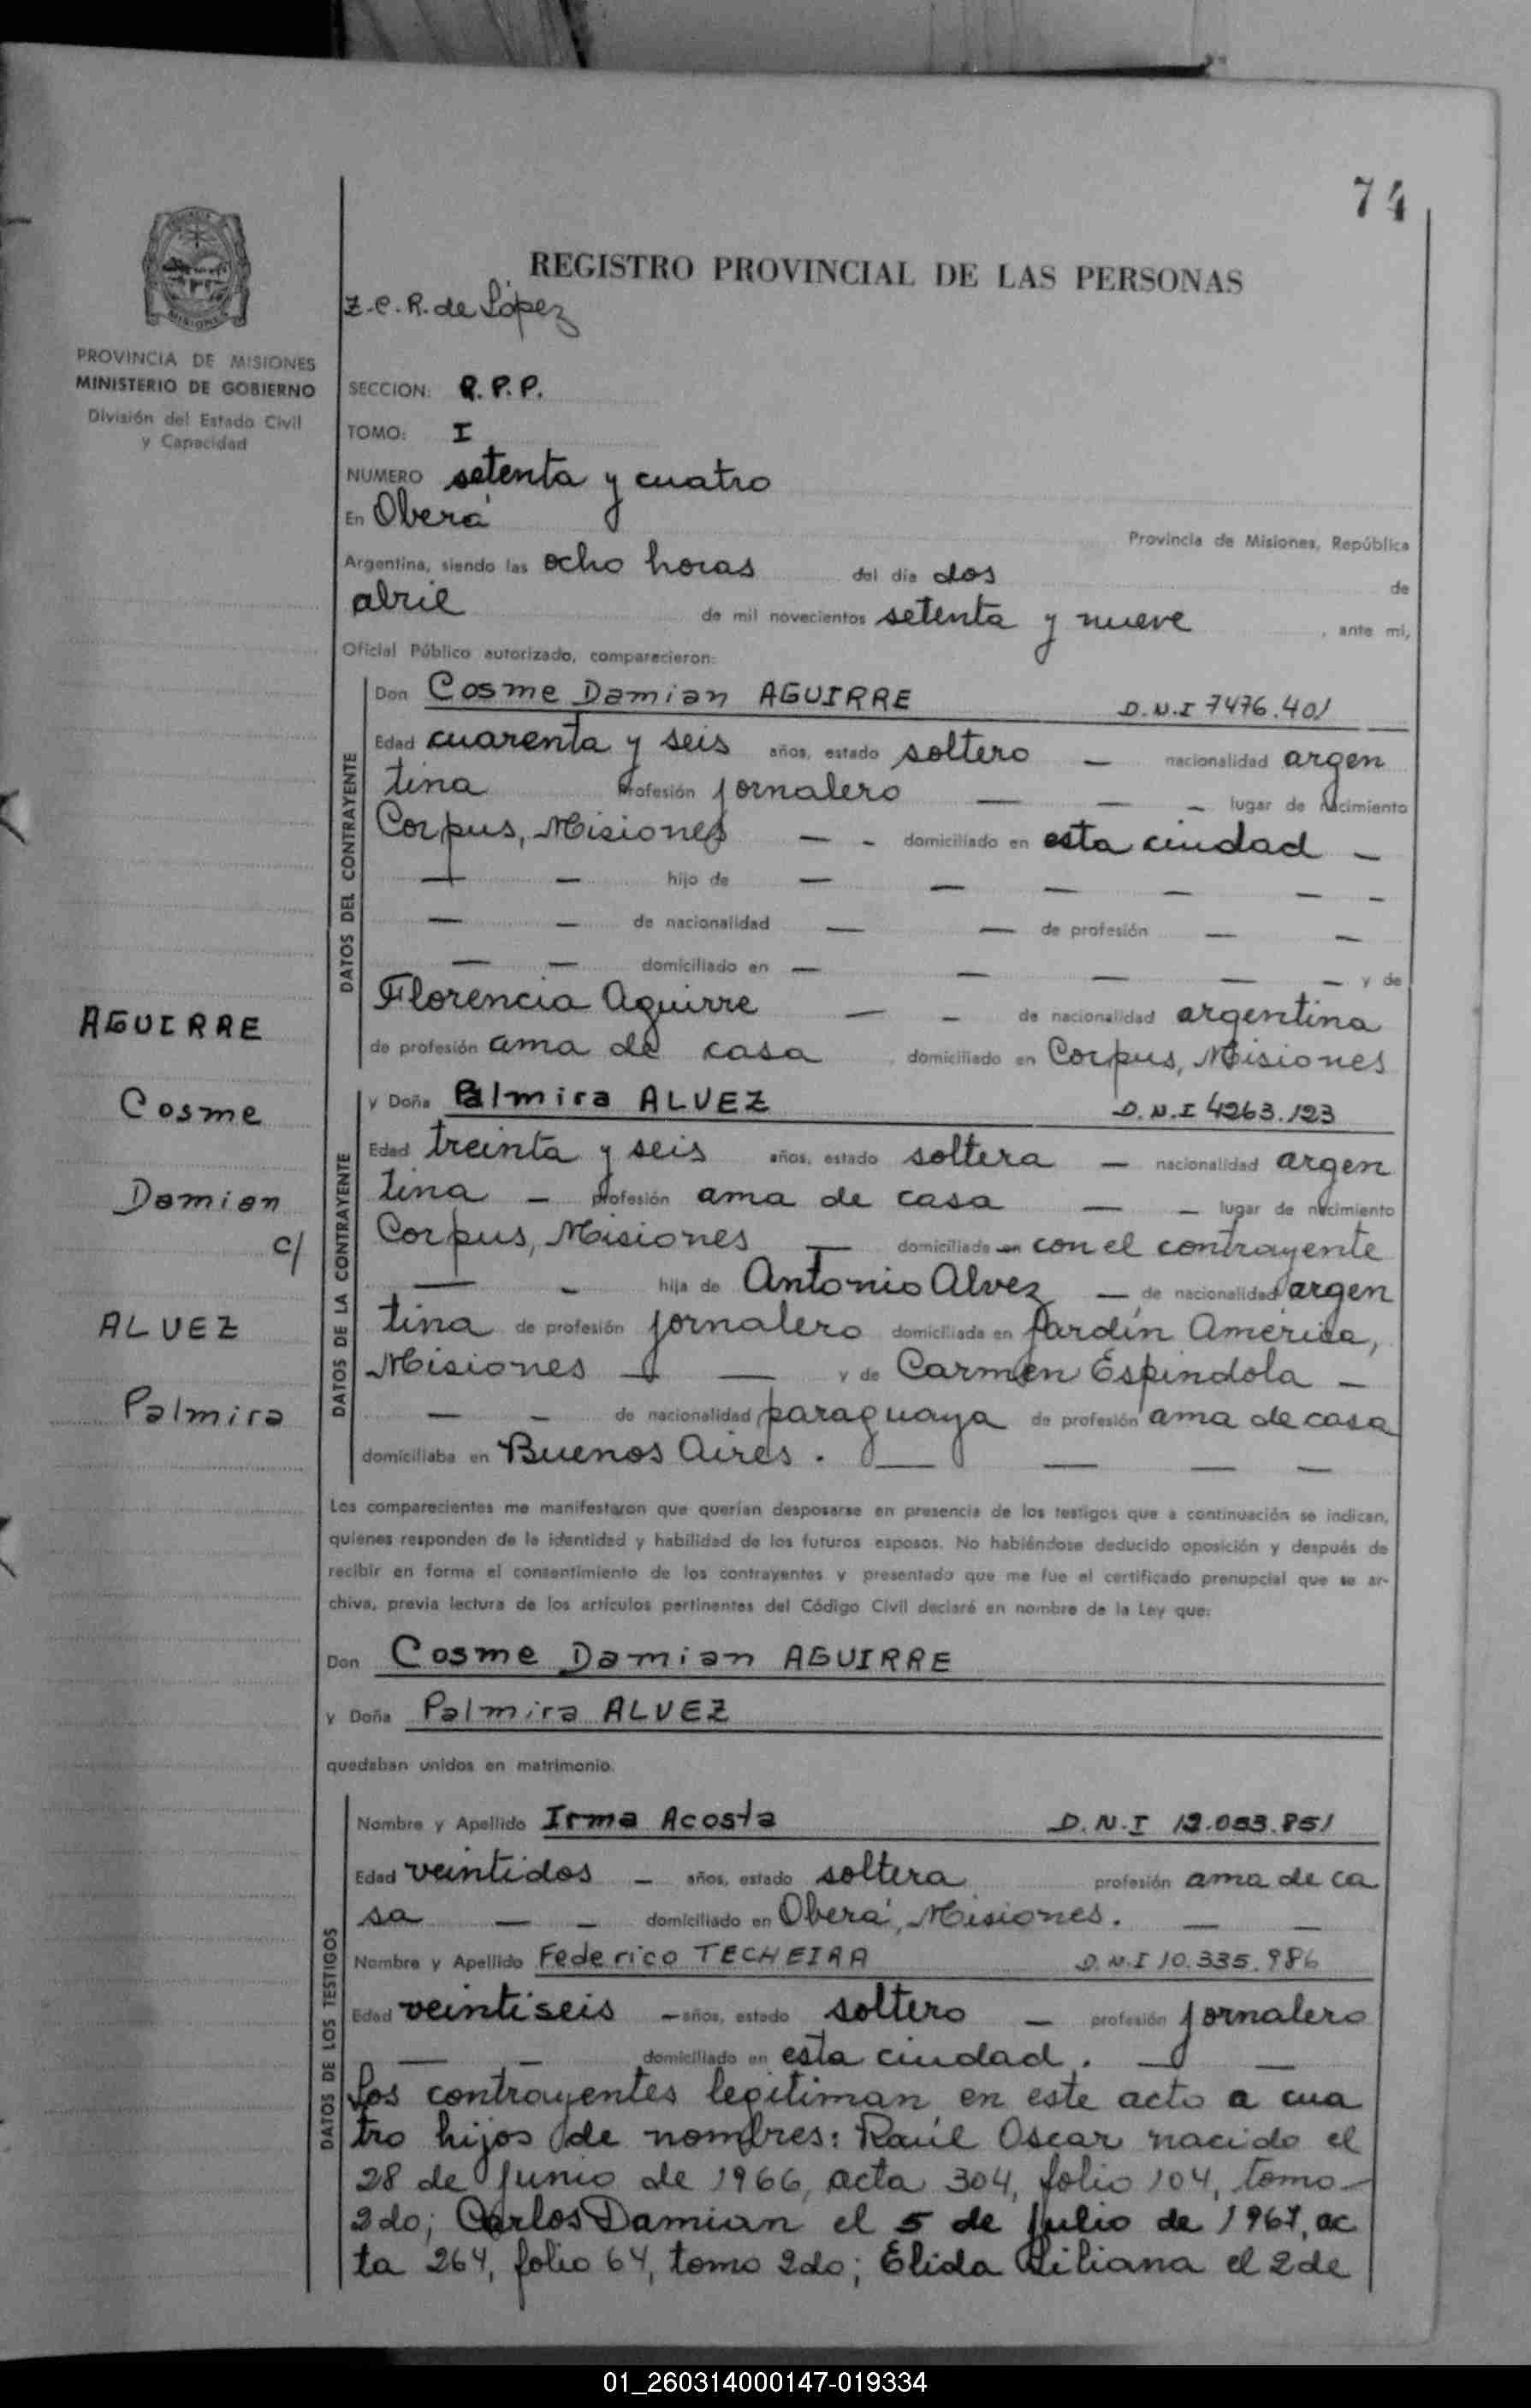 74
REGISTRO PROVINCIAL DE LAS PERSONAS
Z.C.R. de López
PROVINCIA DE MISIONES
MINISTERIO DE GOBIERNO
División del Estado Civil
y Capacidad
SECCION: R.P.P.
TOMO: I
NUMERO setenta y cuatro
En Oberá
Provincia de Misiones, República
Argentina, siendo las ocho horas del día dos de
abril de mil novecientos setenta y nueve, ante mi,
Oficial Público autorizado, comparecieron:
DATOS DEL CONTRAYENTE
Don Cosme Damian AGUIRRE D.N.I 7476.401
Edad cuarenta y seis años, estado soltero — nacionalidad argen
tina profesión jornalero — — — lugar de nacimiento
Corpus, Misiones — - domiciliado en esta ciudad —
— — hijo de — — — — — -
— — de nacionalidad — — de profesión — —
— — domiciliado en — — — — — y de
Florencia Aguirre — - de nacionalidad argentina
de profesión ama de casa, domiciliado en Corpus, Misiones
AGUIRRE
Cosme
Damian
c/
ALVEZ
Palmira
DATOS DE LA CONTRAYENTE
y Doña Palmira ALVEZ D.N.I 4263.123
Edad treinta y seis años, estado soltera — nacionalidad argen
tina — profesión ama de casa — — lugar de nacimiento
Corpus, Misiones — domiciliada en con el contrayente
— - hija de Antonio Alvez — de nacionalidad argen
tina de profesión jornalero domiciliada en Jardín América,
Misiones — — y de Carmen Espindola —
— - de nacionalidad paraguaya de profesión ama de casa
domiciliaba en Buenos Aires. — — — —
Los comparecientes me manifestaron que querían desposarse en presencia de los testigos que a continuación se indican,
quienes responden de la identidad y habilidad de los futuros esposos. No habiéndose deducido oposición y después de
recibir en forma el consentimiento de los contrayentes y presentado que me fue el certificado prenupcial que se ar-
chiva, previa lectura de los artículos pertinentes del Código Civil declaré en nombre de la Ley que:
Don Cosme Damian AGUIRRE
y Doña Palmira ALVEZ
quedaban unidos en matrimonio.
DATOS DE LOS TESTIGOS
Nombre y Apellido Irma Acosta D.N.I
Edad veintidos — años, estado soltera profesión ama de ca
sa — — domiciliado en Oberá, Misiones. — —
Nombre y Apellido Federico TECHEIRA D.N.I 10.335.986
Edad veintiseis — años, estado soltero — profesión jornalero
— — domiciliado en esta ciudad. — —
Los contrayentes legitiman en este acto a cua
tro hijos de nombres: Raúl Oscar nacido el
28 de Junio de 1966, acta 304, folio 104, tomo
2do; Carlos Damian el 5 de Julio de 1967, ac
ta 264, folio 64, tomo 2do; Elida Liliana el 2 de
01_260314000147-019334